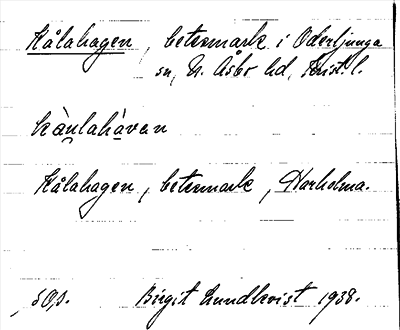 Kålahagen, betesmark i Oderljunga
sn, N. Åsbo hd, Krist. l.
kàu̯lahàvan
Kålahagen, betesmark, Harholma.
50,1. Birgit Lundkvist 1938.